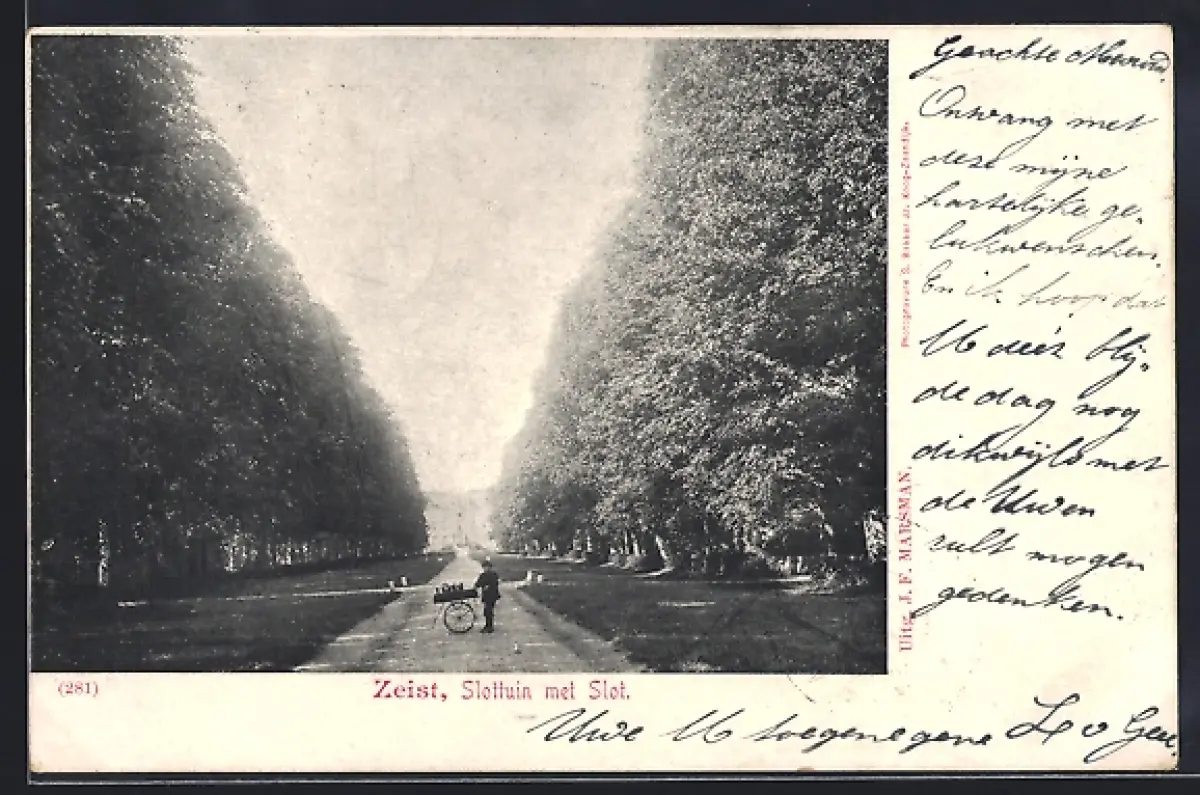 Geachte Mevrouw.
Ontvang met
deze mijne
hartelijke ge-
lukwenschen.
En ik hoop dat
U deez blij-
de dag nog
dikwijls met
de Uwen
zult mogen
gedenken.
Uwe U toegenegene L v
Uitg. J. F. MARSMAN.
(281)
Zeist, Slottuin met Slot.